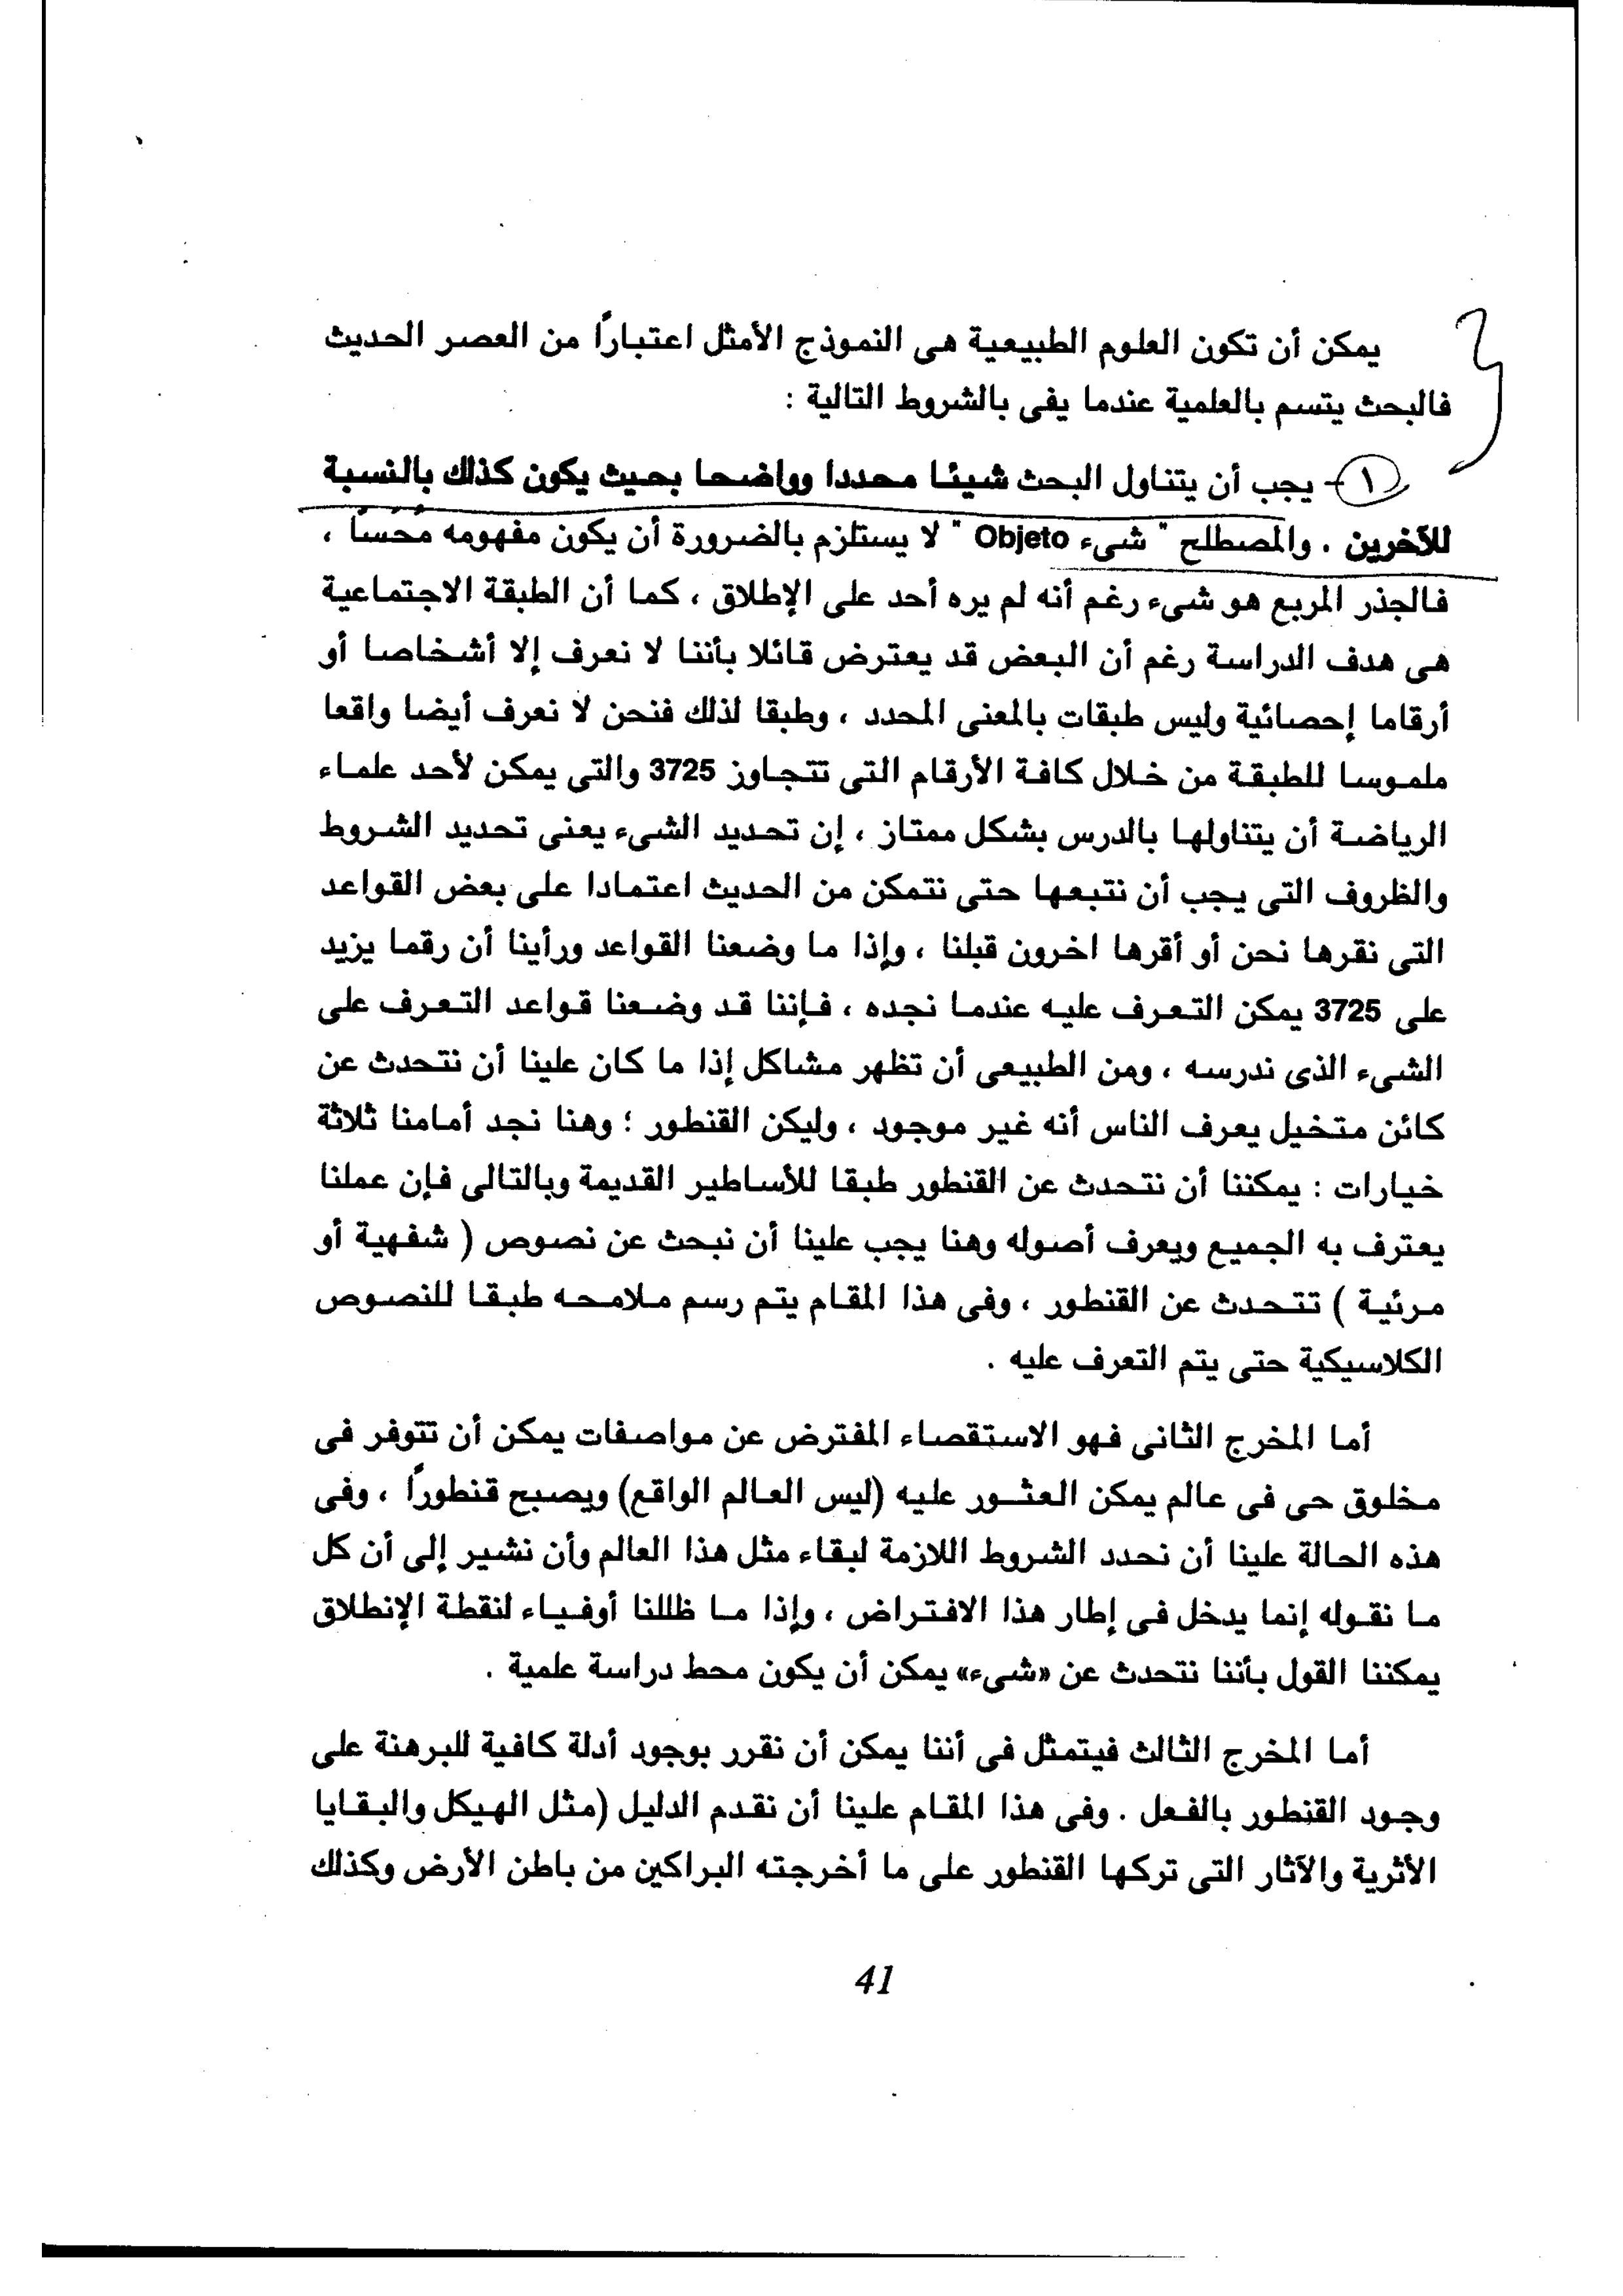 يمكن أن تكون العلوم الطبيعية هى النموذج الأمثل اعتبارًا من العصر الحديث
فالبحث يتسم بالعلمية عندما يفى بالشروط التالية :
١ - يجب أن يتناول البحث شيئا محددا وواضحا بحيث يكون كذلك بالنسبة
للآخرين . والمصطلح " شىء Objeto " لا يستلزم بالضرورة أن يكون مفهومه مُحَسًا ،
فالجذر المربع هو شىء رغم أنه لم يره أحد على الإطلاق ، كما أن الطبقة الاجتماعية
هى هدف الدراسة رغم أن البعض قد يعترض قائلا بأننا لا نعرف إلا أشخاصا أو
أرقاما إحصائية وليس طبقات بالمعنى المحدد ، وطبقا لذلك فنحن لا نعرف أيضا واقعا
ملموسا للطبقة من خلال كافة الأرقام التى تتجاوز 3725 والتى يمكن لأحد علماء
الرياضة أن يتناولها بالدرس بشكل ممتاز ، إن تحديد الشىء يعنى تحديد الشروط
والظروف التى يجب أن نتبعها حتى نتمكن من الحديث اعتمادا على بعض القواعد
التى نقرها نحن أو أقرها اخرون قبلنا ، وإذا ما وضعنا القواعد ورأينا أن رقما يزيد
على 3725 يمكن التعرف عليه عندما نجده ، فإننا قد وضعنا قواعد التعرف على
الشىء الذى ندرسه ، ومن الطبيعى أن تظهر مشاكل إذا ما كان علينا أن نتحدث عن
كائن متخيل يعرف الناس أنه غير موجود ، وليكن القنطور ؛ وهنا نجد أمامنا ثلاثة
خيارات : يمكننا أن نتحدث عن القنطور طبقا للأساطير القديمة وبالتالى فإن عملنا
يعترف به الجميع ويعرف أصوله وهنا يجب علينا أن نبحث عن نصوص ( شفهية أو
مرئية ) تتحدث عن القنطور ، وفى هذا المقام يتم رسم ملامحه طبقا للنصوص
الكلاسيكية حتى يتم التعرف عليه .
أما المخرج الثانى فهو الاستقصاء المفترض عن مواصفات يمكن أن تتوفر فى
مخلوق حى فى عالم يمكن العثور عليه (ليس العالم الواقع) ويصبح قنطورًا ، وفى
هذه الحالة علينا أن نحدد الشروط اللازمة لبقاء مثل هذا العالم وأن نشير إلى أن كل
ما نقوله إنما يدخل فى إطار هذا الافتراض ، وإذا ما ظللنا أوفياء لنقطة الإنطلاق
يمكننا القول بأننا نتحدث عن «شىء» يمكن أن يكون محط دراسة علمية .
أما المخرج الثالث فيتمثل فى أننا يمكن أن نقرر بوجود أدلة كافية للبرهنة على
وجود القنطور بالفعل . وفى هذا المقام علينا أن نقدم الدليل (مثل الهيكل والبقايا
الأثرية والآثار التى تركها القنطور على ما أخرجته البراكين من باطن الأرض وكذلك
41